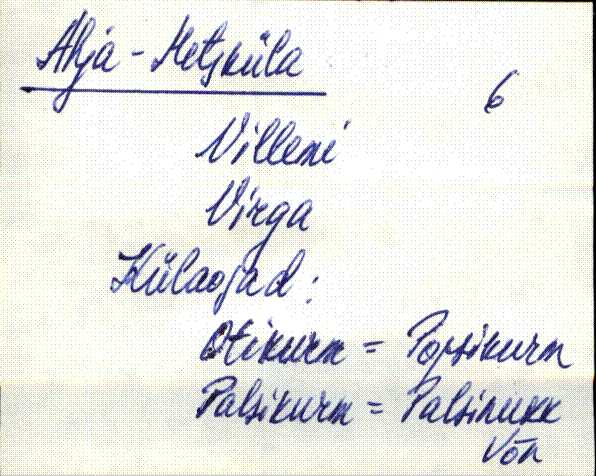 Ahja - Metsküla
6
Villemi
Virga
Külaosad:
Otikurm = Popsikurm
Palsikurm = Palsinukk
Võn